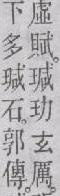 虛賦。瑊玏玄厲。
下多瑊石。郭傳。